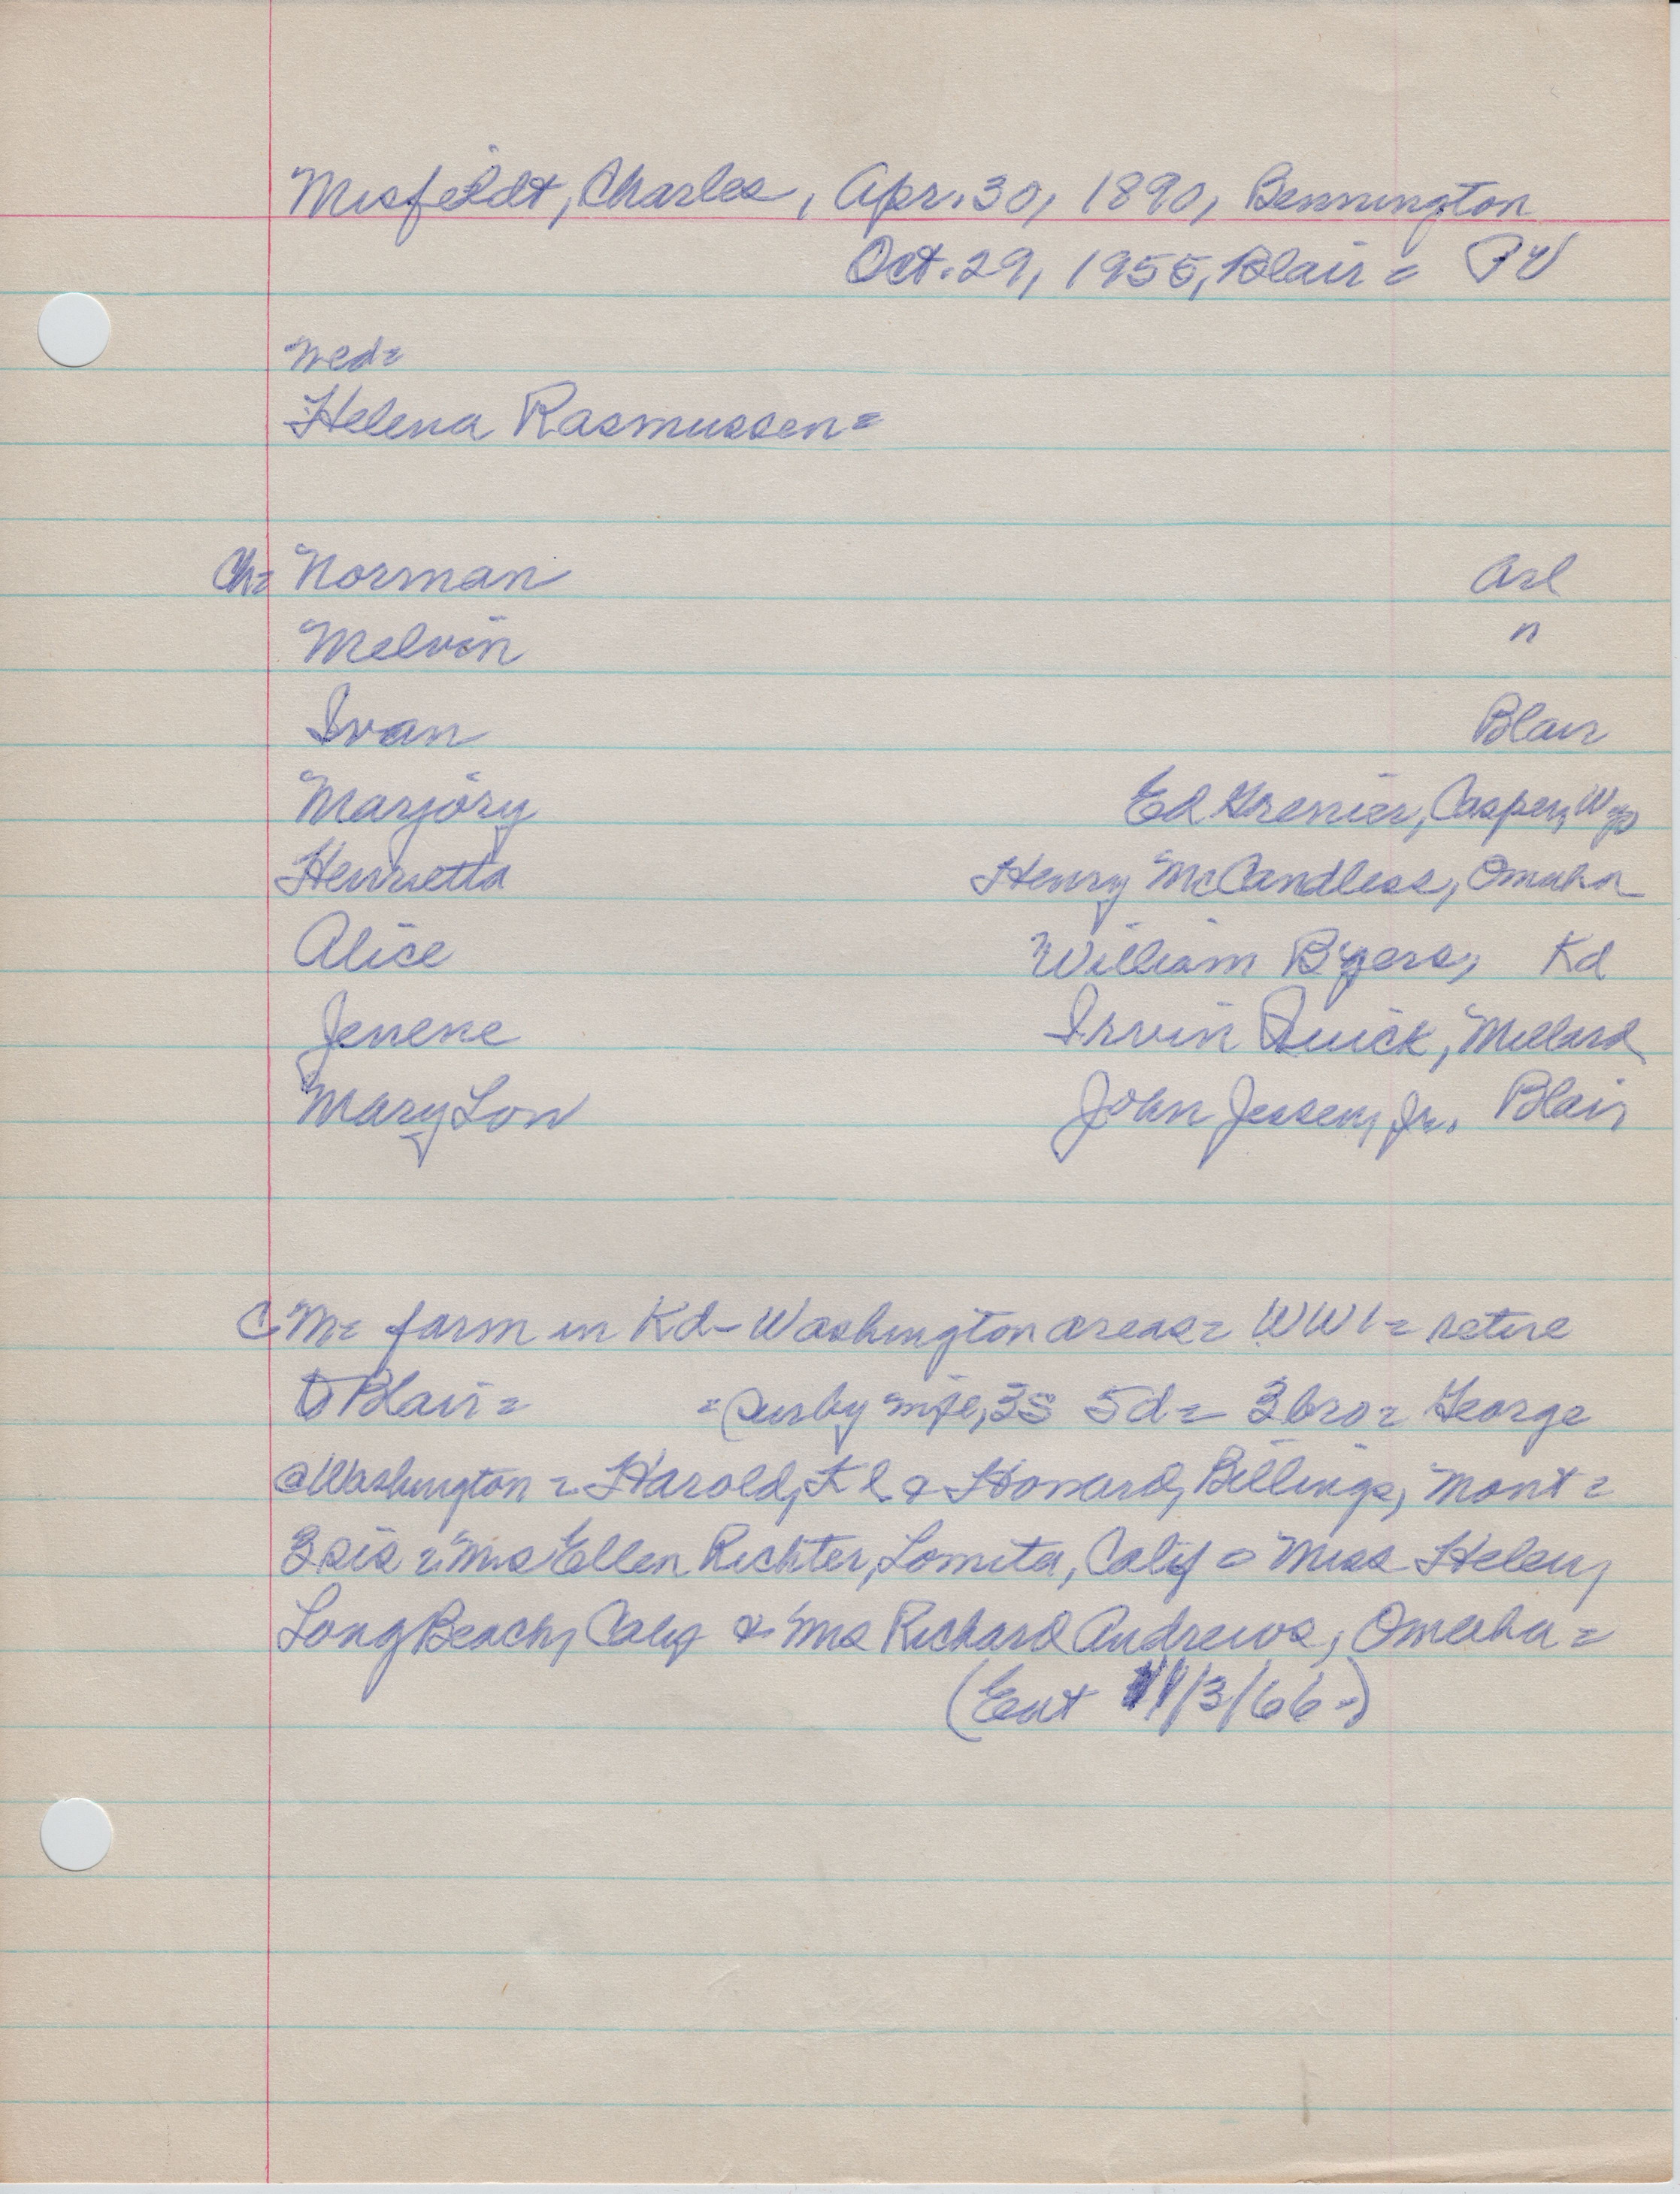 Misfeldt, Charles, Apr. 30, 1890, Bennington
Oct. 29, 1955, Blair = PV
Wed=
Helena Rasmussen=
Ch= Norman Arl
Melvin "
Ivan Blair
Marjory Ed Grenier, Casper, Wyo
Henrietta Henry McCandless, Omaha
Alice William Byers, Kd
Jenene Irvin Quick, Millard
Mary Lou John Jessen, Jr. Blair
CM= farm in Kd-Washington areas= WW1= retire
to Blair= =Sur by wife, 3s 5d= 3 bro= George
@Washington = Harold, & Howard, Billings, Mont=
3 sis = Mrs Ellen Richter, Lomita, Calif = Miss Helen,
Long Beach, Calif & Mrs Richard Andrews, Omaha=
(Ent 11/3/66-)